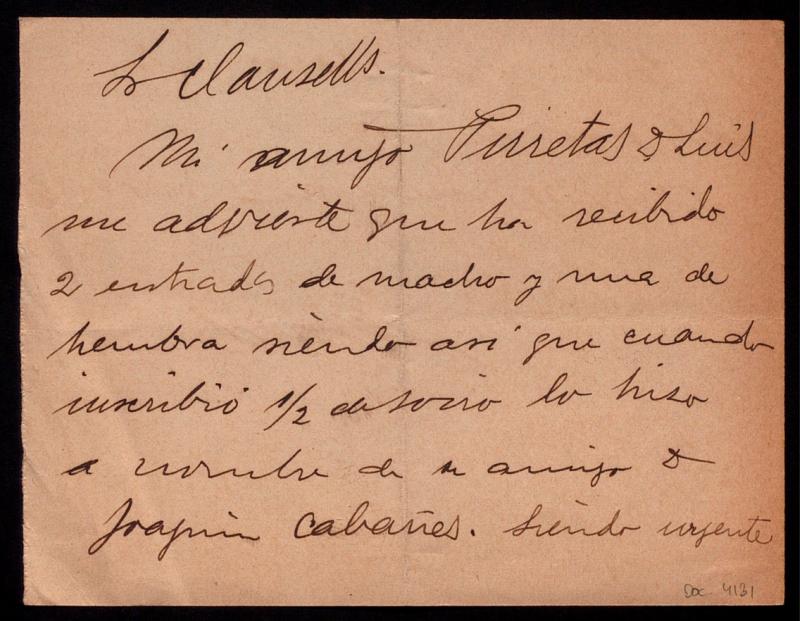 Sr Clausells.
Mi amigo Pirretas D Luis
me advierte que ha recibido
2 entradas de macho y una de
hembra siendo así que cuando
inscribió 1/2 de socio lo hiso
a nombre de su amigo D
Joaquin Cabañes. Siendo urgente
Doc. 4131